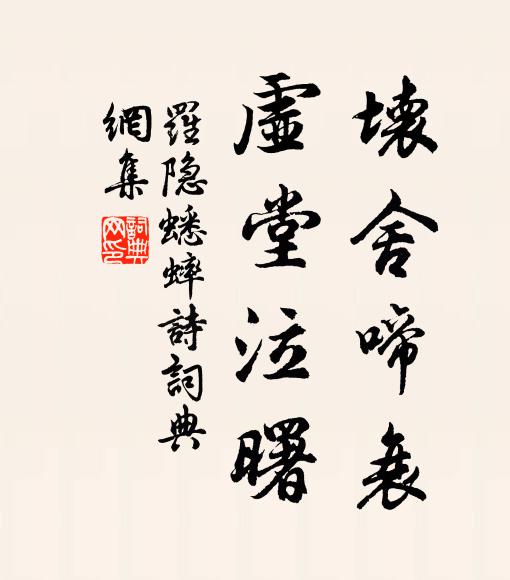 壞舍啼衰
虛堂泣曙
羅隐蟋蟀詩詞典
網集
詞典
网印